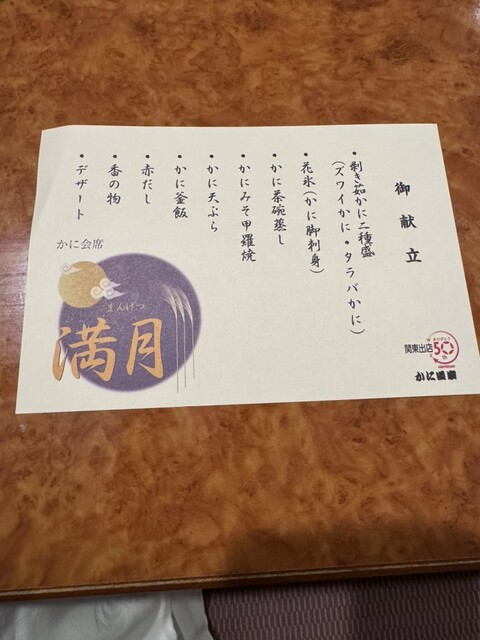 御献立
・剥き茹かに二種盛
(ズワイかに・タラバかに)
・花氷(かに脚刺身)
・かに茶碗蒸し
・かにみそ甲羅焼
・かに天ぷら
・かに釜飯
・赤だし
・香の物
・デザート
かに会席
まんげつ
満月
関東出店
50